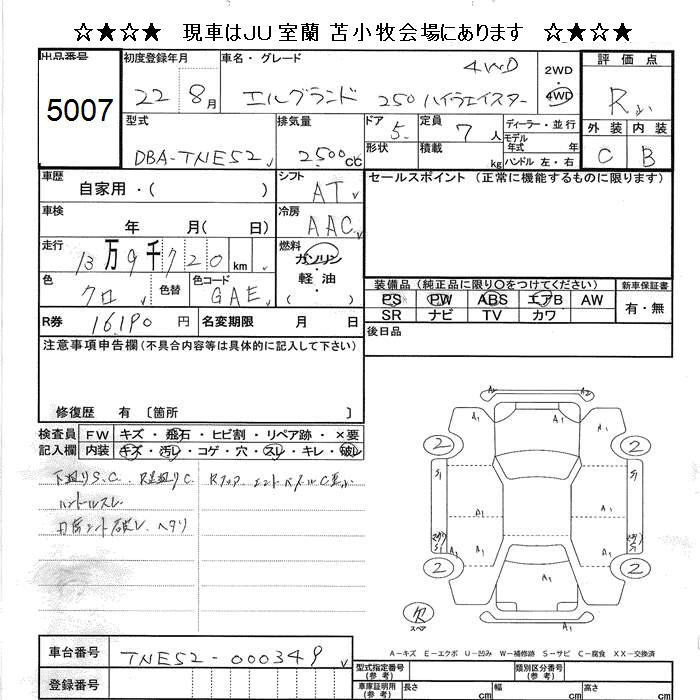 ☆★☆★ 現車はJU室蘭 苫小牧会場にあります ☆★☆★
出品番号 5007
初度登録年月 22 8月
車名・グレード エルグランド 250 ハイウェイスター 4WD
2WD 4WD
評価点 R
外装 内装
C B
型式 DBA-TNE52
排気量 2500cc
ドア 5 形状
定員 7人 積載 kg
ディーラー・並行
モデル年式 年
ハンドル 左・右
車歴 自家用・( )
シフト AT
セールスポイント (正常に機能するものに限ります)
車検 年 月( 日)
冷房 AAC
走行 13万9千720km
燃料 ガソリン・軽油
色 クロ
色替
色コード GAE
装備品(純正品に限り○をつけてください)
新車保証書
PS PW ABS エアB AW
有・無
SR ナビ TV カワ
R券 16190円
名変期限 月 日
後日品
注意事項申告欄(不具合内容等は具体的に記入して下さい)
修復歴 有〔箇所 〕
検査員記入欄
FW キズ・飛石・ヒビ割・リペア跡・×要
内装 キズ・汚レ・コゲ・穴・スレ・キレ・破レ
下廻りS.C.
ハンドルスレ
A2 A2
A1 A1
2 2
S1 A1 S1
A1 A1
S1 A2 A1 S1
2 A1 2
A1
スペア
A-キズ E-エクボ U-凹み W-補修跡 S-サビ C-腐食 XX-交換済
車台番号 TNE52-000349
登録番号
型式指定番号(参考)
類別区分番号(参考)
車庫証明用(参考) 長さ cm 幅 cm 高さ cm